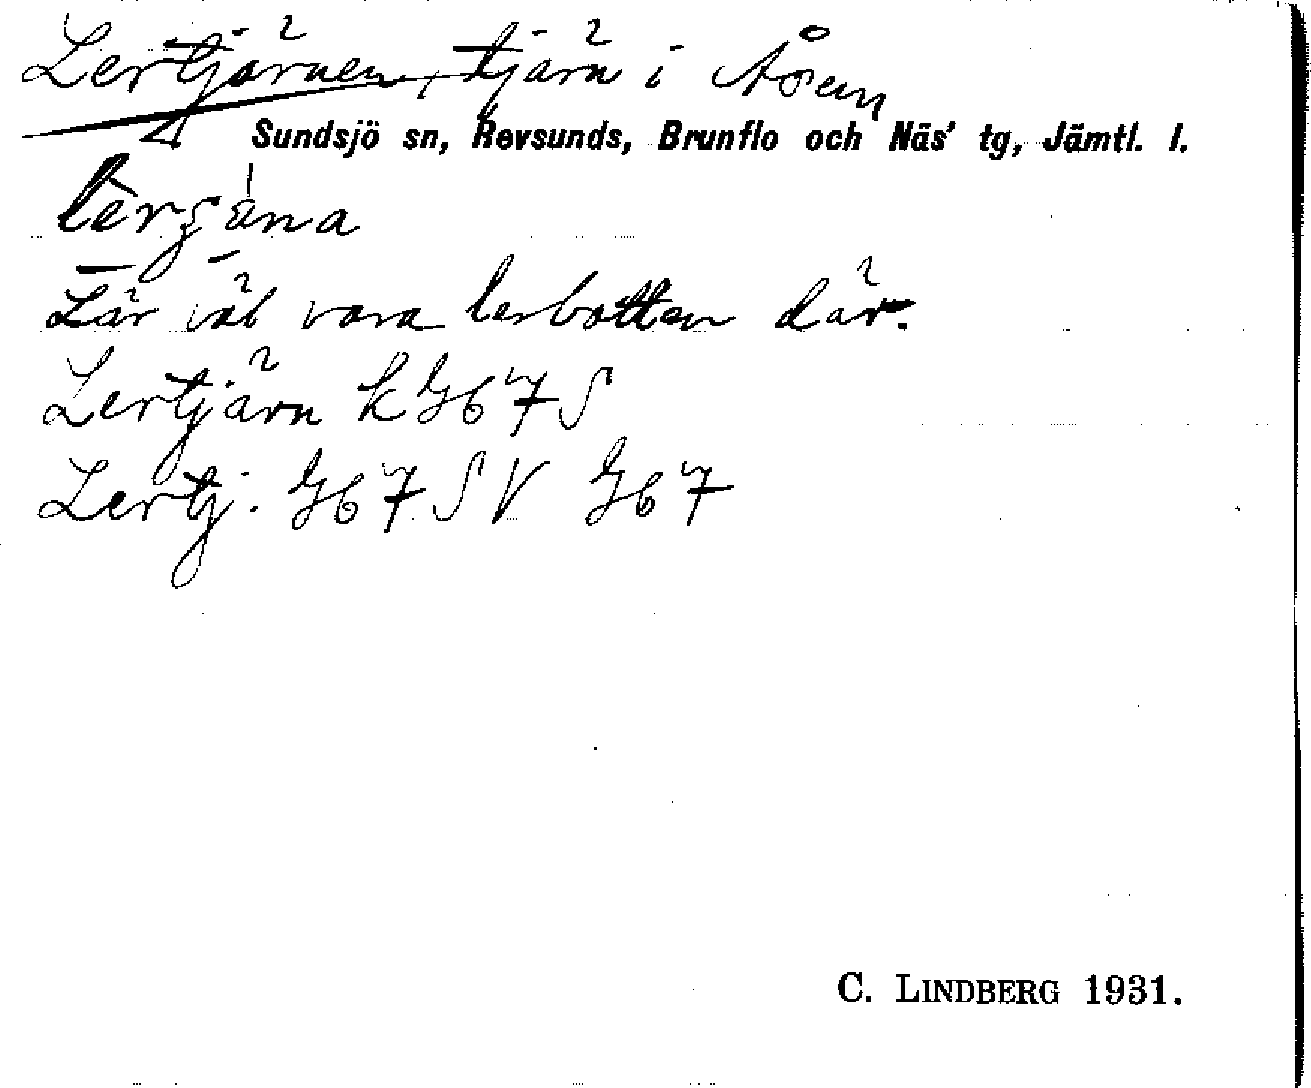 Lertjärnen, tjärn i Åsen
Sundsjö sn, Revsunds, Brunflo och Näs' tg, Jämtl. l.
Lär väl vara lerbotten där.
Lertjärn k G6 7 S
Lertj. G6 7 S V G6 7
C. LINDBERG 1931.